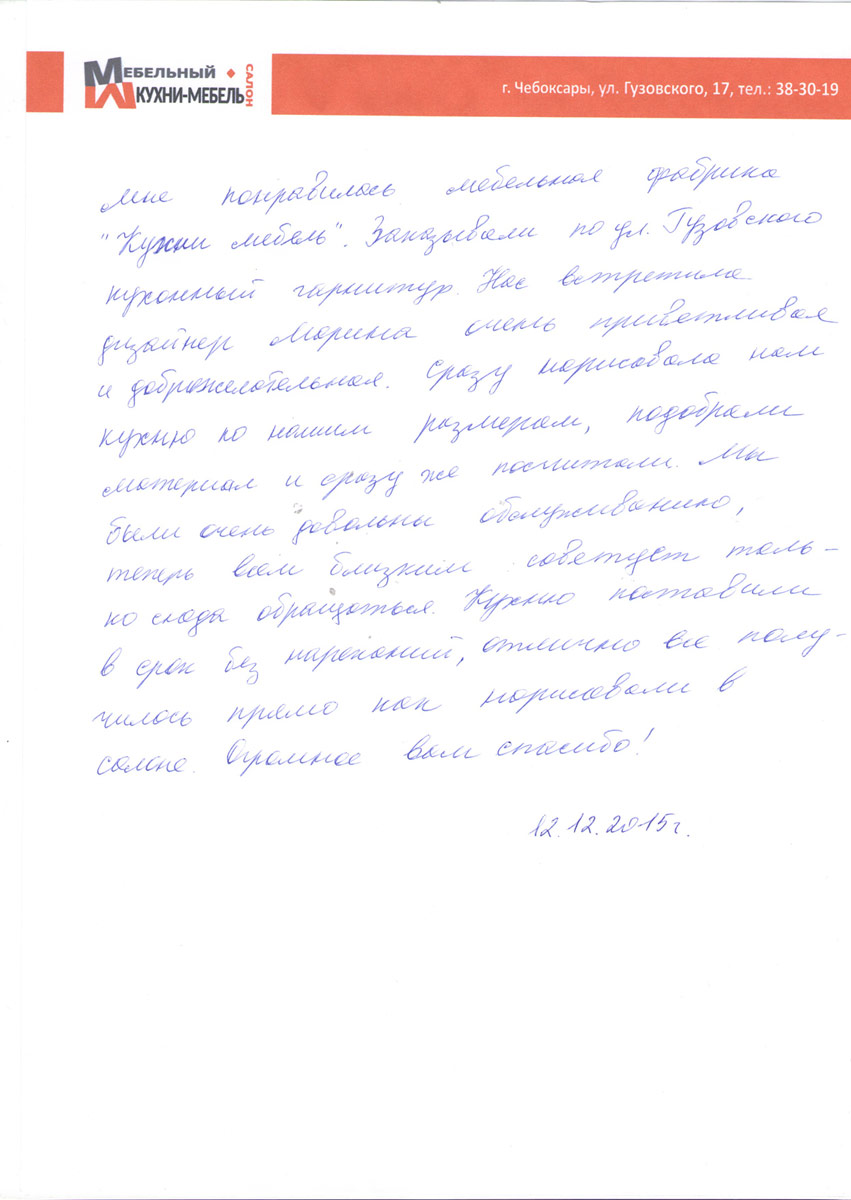 МЕБЕЛЬНЫЙ САЛОН
КУХНИ-МЕБЕЛЬ
г. Чебоксары, ул. Гузовского, 17, тел.: 38-30-19
Мне понравилась мебельная фабрика
"Кухни мебель". Заказывали по ул. Гузовского
кухонный гарнитур. Нас встретила
дизайнер Марина очень приветливая
и доброжелательная. Сразу нарисовала нам
кухню по нашим размерам, подобрали
материал и сразу же посчитали. Мы
были очень довольны обслуживанию,
теперь всем близким советуем толь-
ко сюда обращаться. Кухню поставили
в срок без нареканий, отлично все полу-
чилось прямо как нарисовали в
салоне. Огромное вам спасибо!
12.12.2015г.